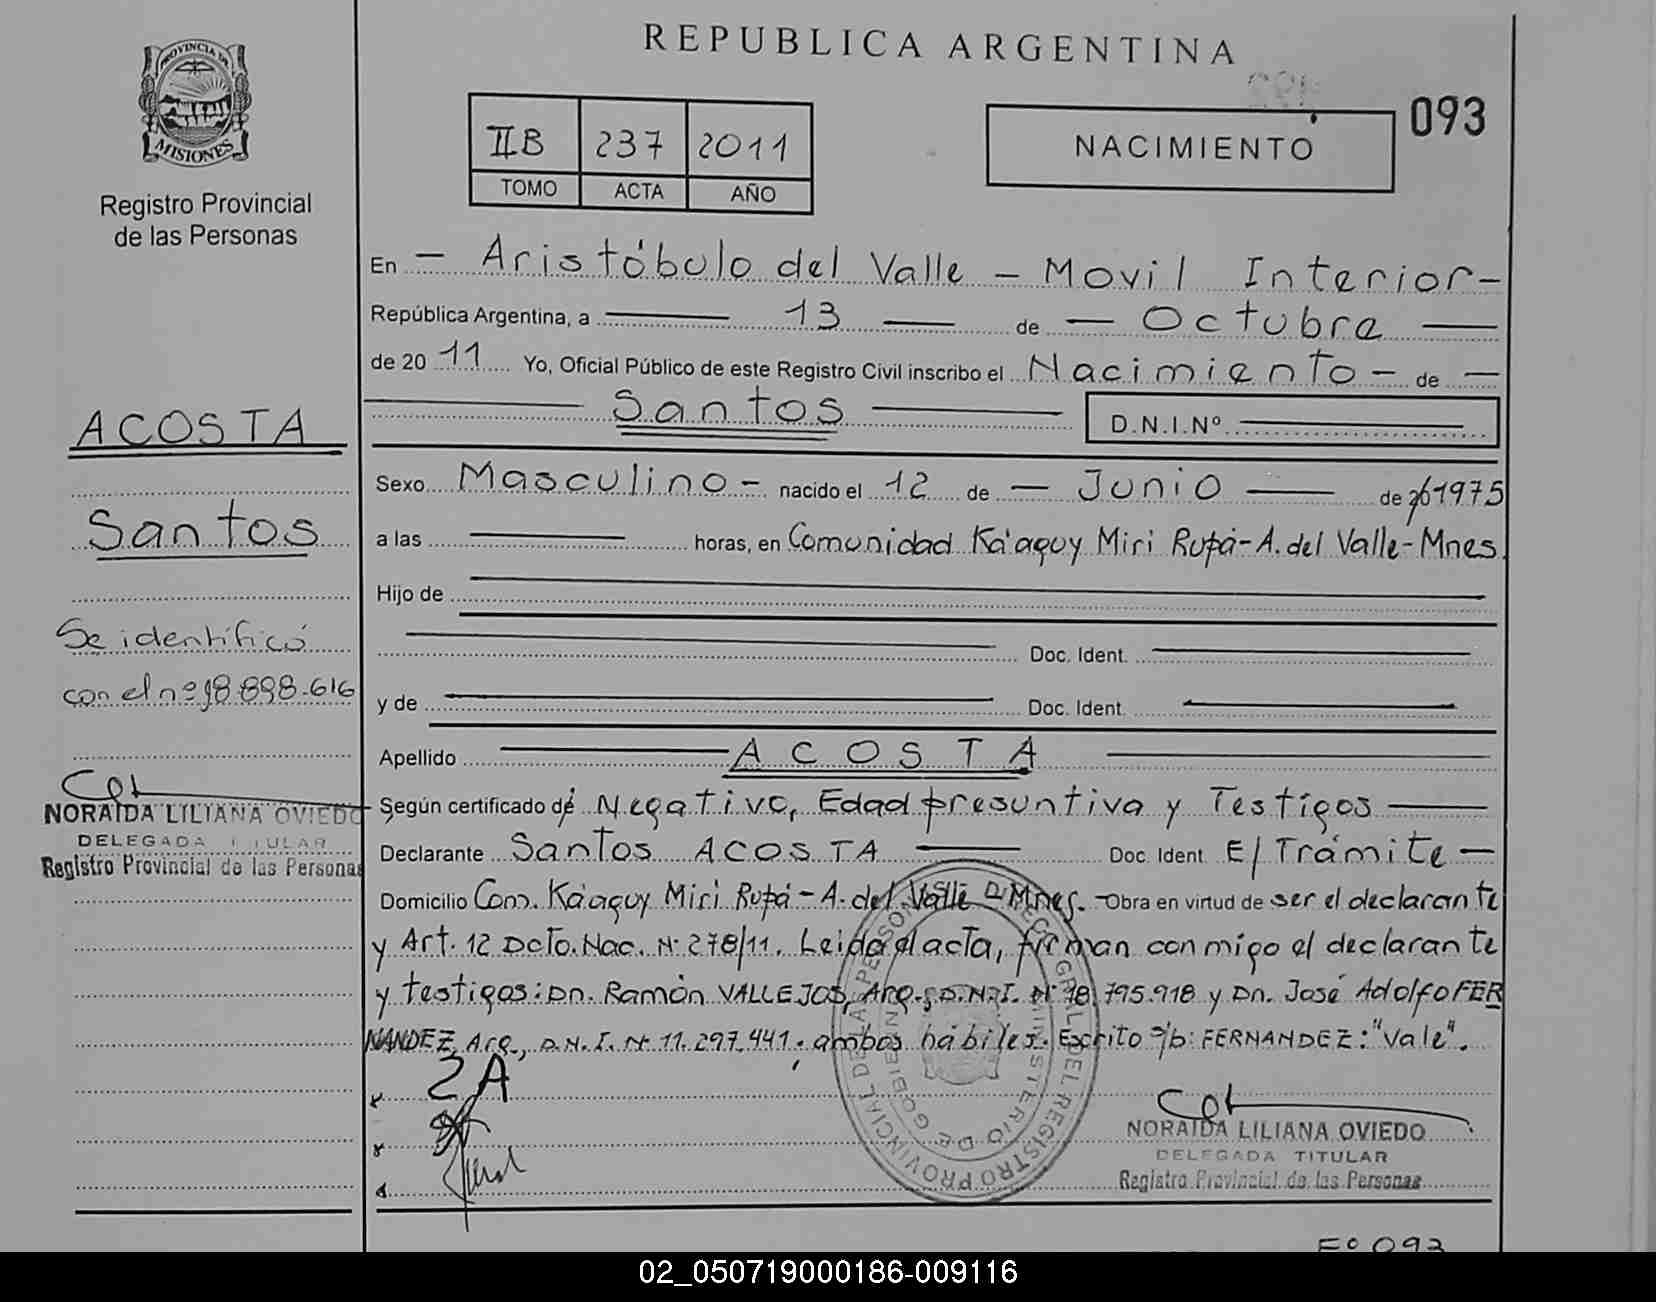 REPUBLICA ARGENTINA
PROVINCIA DE
MISIONES
Registro Provincial
de las Personas
IIB 237 2011
TOMO ACTA AÑO
NACIMIENTO
093
En - Aristóbulo del Valle - Movil Interior-
República Argentina, a 13 de - Octubre
de 20 11 Yo, Oficial Público de este Registro Civil inscribo el Nacimiento - de -
Santos D.N.I.Nº
ACOSTA
Santos
Se identificó
con el nº 18.898.616
NORAIDA LILIANA OVIEDO
DELEGADA TITULAR
Registro Provincial de las Personas
Sexo Masculino - nacido el 12 de - Junio de 1975
a las horas, en Comunidad Ka'aguy Miri Rupá-A. del Valle-Mnes.
Hijo de
Doc. Ident.
y de Doc. Ident.
Apellido ACOSTA
Según certificado de Negativo, Edad presuntiva y Testigos
Declarante Santos ACOSTA Doc. Ident. E/ Trámite -
Domicilio Com. Ka'aguy Miri Rupá - A. del Valle - Mnes. - Obra en virtud de ser el declarante
y Art. 12 Dcto. Nac. Nº 278/11. Leida el acta, firman conmigo el declarante
y testigos: Dn. Ramón VALLEJOS, Arg., D.N.I. Nº 18.795.918 y Dn. José Adolfo FER
NANDEZ, Arg., D.N.I. Nº 11.297.441; ambos hábiles. Escrito s/b: FERNANDEZ: "Vale".
SA
REGISTRO PROVINCIAL DE LAS PERSONAS
MINISTERIO DE GOBIERNO
NORAIDA LILIANA OVIEDO
DELEGADA TITULAR
Registro Provincial de las Personas
Fº 093
02_050719000186-009116